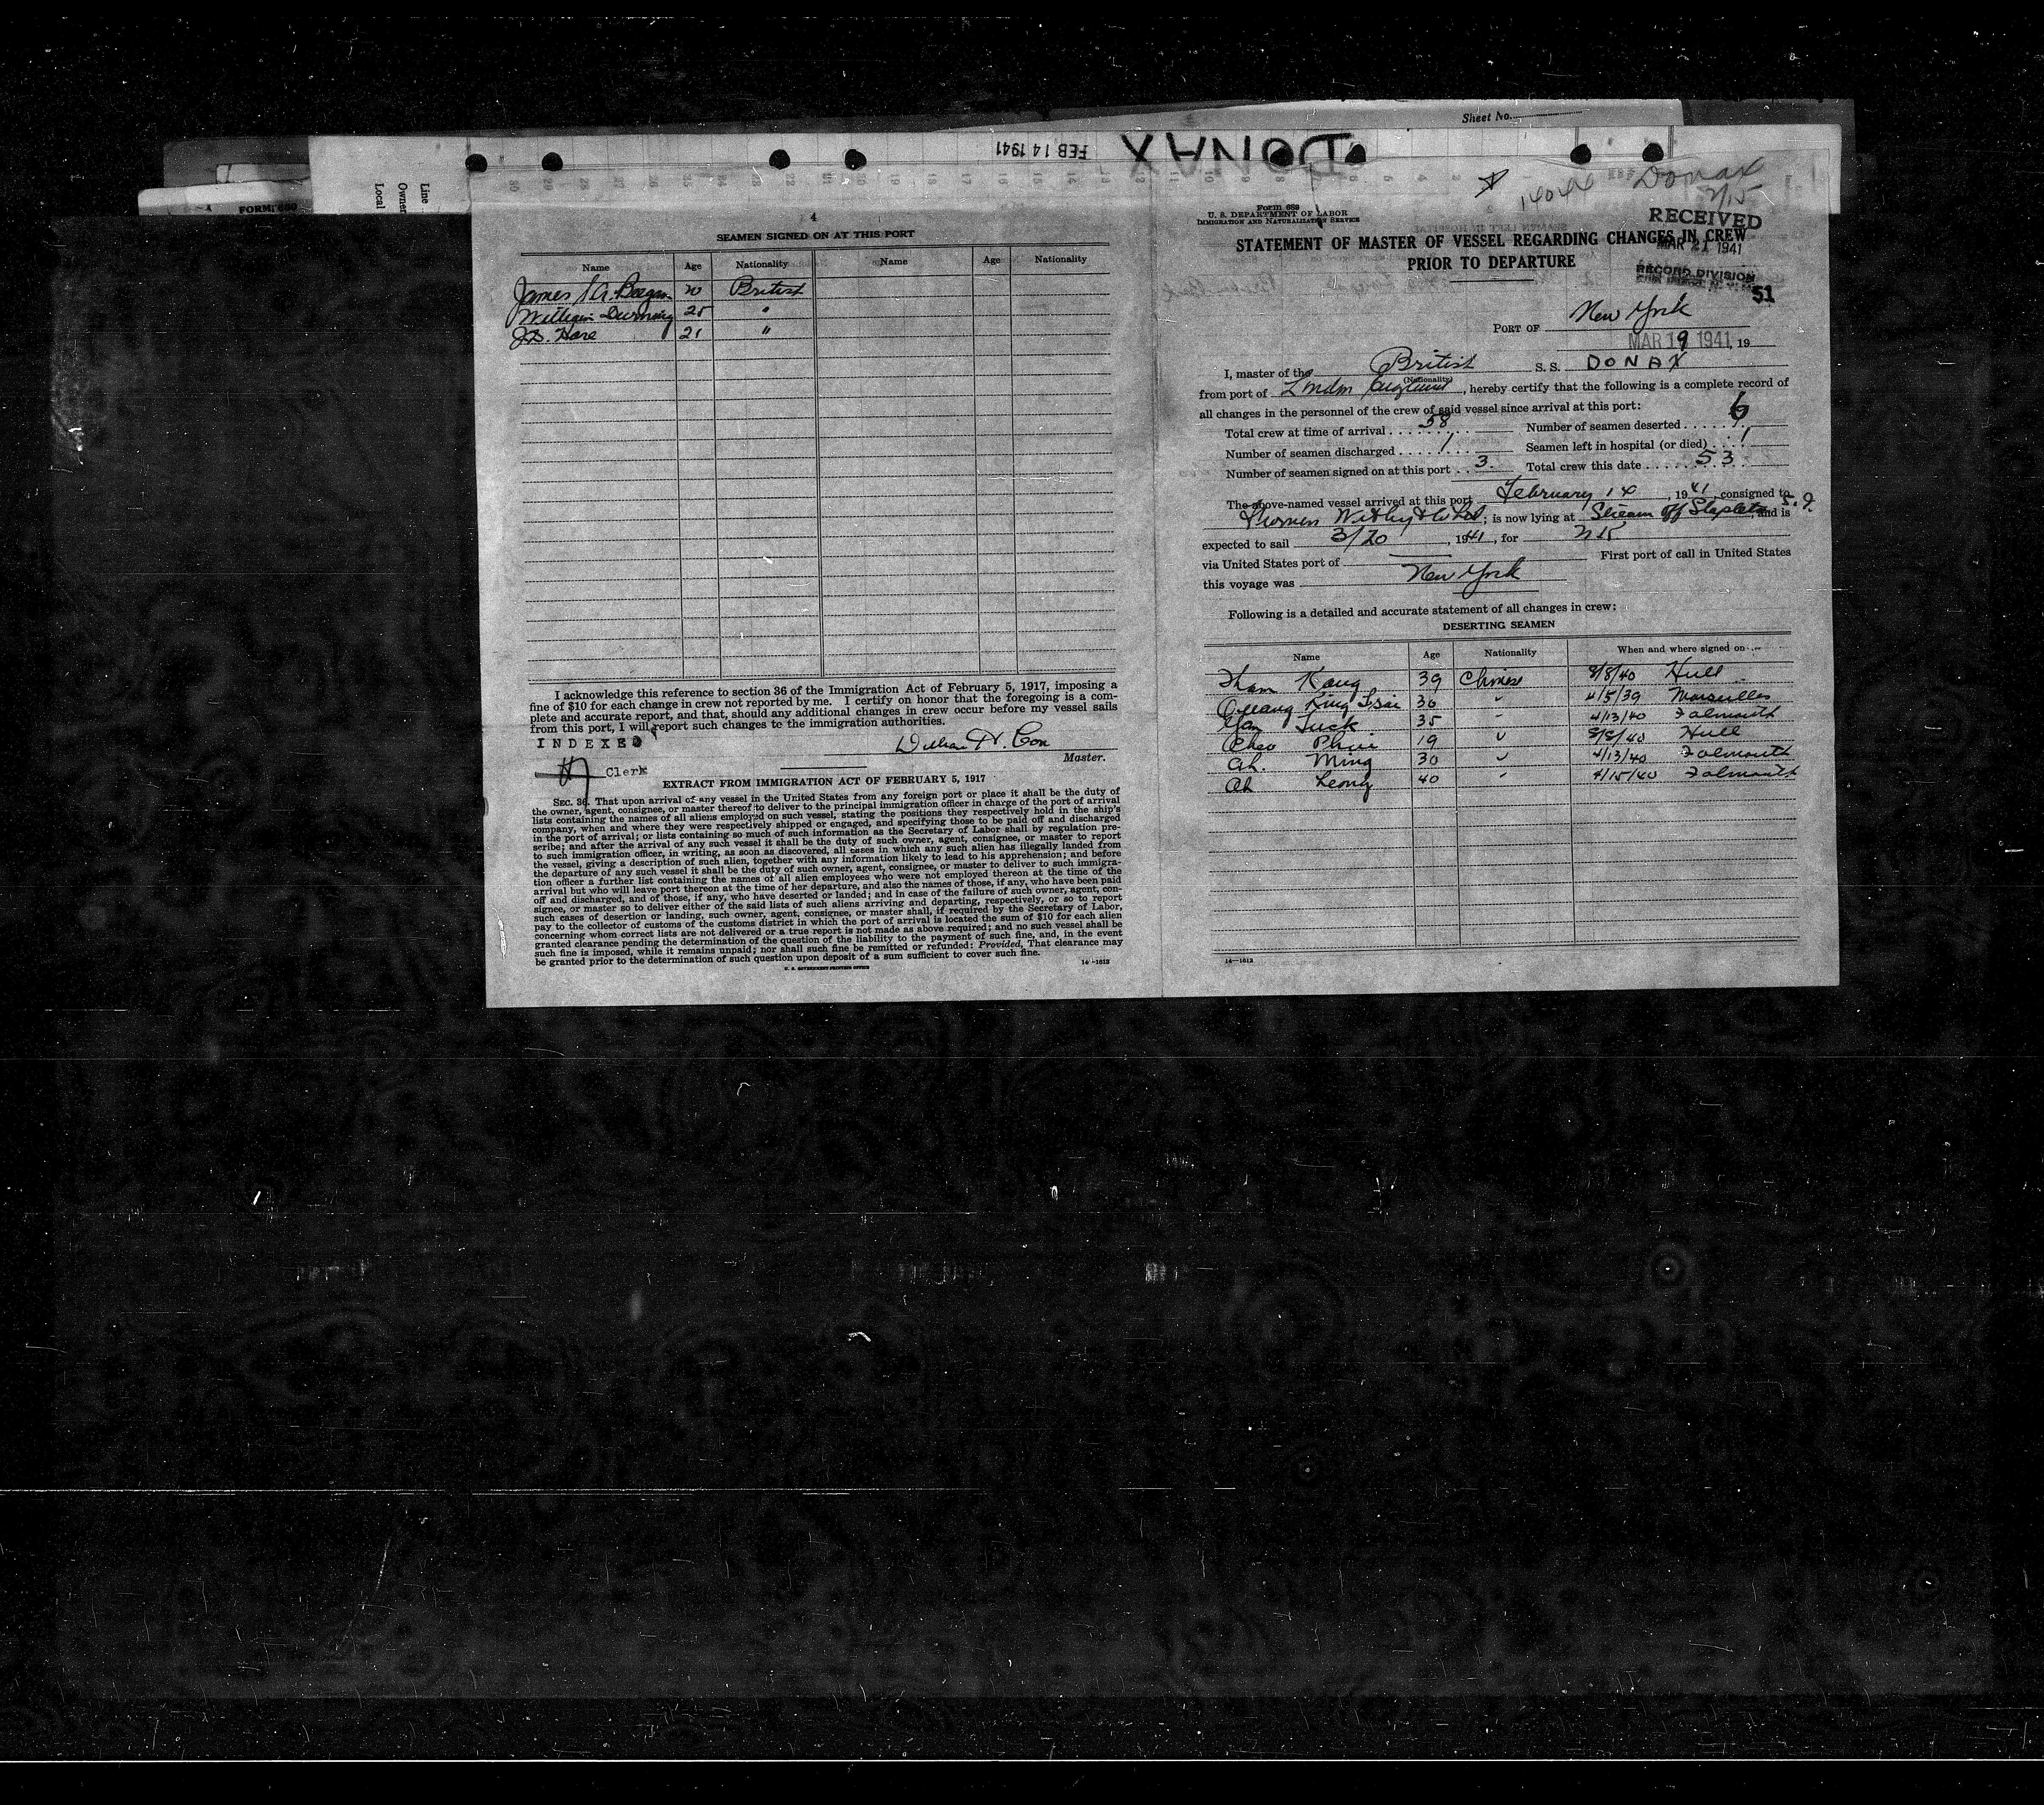 Sheet No.
DONAX
FEB 14 1941
Line
Owner
Local
FORM 680
4
SEAMEN SIGNED ON AT THIS PORT
Name Age Nationality Name Age Nationality
James A. British
William Durning 25 "
J.D. Hare 21 "
I acknowledge this reference to section 36 of the Immigration Act of February 5, 1917, imposing a
fine of $10 for each change in crew not reported by me. I certify on honor that the foregoing is a com-
plete and accurate report, and that, should any additional changes in crew occur before my vessel sails
from this port, I will report such changes to the immigration authorities.
INDEXED
William H. Cox
Master.
Clerk
EXTRACT FROM IMMIGRATION ACT OF FEBRUARY 5, 1917
SEC. 36. That upon arrival of any vessel in the United States from any foreign port or place it shall be the duty of
the owner, agent, consignee, or master thereof to deliver to the principal immigration officer in charge of the port of arrival
lists containing the names of all aliens employed on such vessel, stating the positions they respectively hold in the ship's
company, when and where they were respectively shipped or engaged, and specifying those to be paid off and discharged
in the port of arrival; or lists containing so much of such information as the Secretary of Labor shall by regulation pre-
scribe; and after the arrival of any such vessel it shall be the duty of such owner, agent, consignee, or master to report
to such immigration officer, in writing, as soon as discovered, all cases in which any such alien has illegally landed from
the vessel, giving a description of such alien, together with any information likely to lead to his apprehension; and before
the departure of any such vessel it shall be the duty of such owner, agent, consignee, or master to deliver to such immigra-
tion officer a further list containing the names of all alien employees who were not employed thereon at the time of the
arrival but who will leave port thereon at the time of her departure, and also the names of those, if any, who have been paid
off and discharged, and of those, if any, who have deserted or landed; and in case of the failure of such owner, agent, con-
signee, or master so to deliver either of the said lists of such aliens arriving and departing, respectively, or so to report
such cases of desertion or landing, such owner, agent, consignee, or master shall, if required by the Secretary of Labor,
pay to the collector of customs of the customs district in which the port of arrival is located the sum of $10 for each alien
concerning whom correct lists are not delivered or a true report is not made as above required; and no such vessel shall be
granted clearance pending the determination of the question of the liability to the payment of such fine, and, in the event
such fine is imposed, while it remains unpaid; nor shall such fine be remitted or refunded: Provided, That clearance may
be granted prior to the determination of such question upon deposit of a sum sufficient to cover such fine.
U. S. GOVERNMENT PRINTING OFFICE 14-1612
14044 Donax
2/15
Form 689
U. S. DEPARTMENT OF LABOR
IMMIGRATION AND NATURALIZATION SERVICE
RECEIVED
MAR 21 1941
RECORD DIVISION
51
STATEMENT OF MASTER OF VESSEL REGARDING CHANGES IN CREW
PRIOR TO DEPARTURE
PORT OF New York
MAR 19 1941, 19
I, master of the British S. S. DONAX
(Nationality)
from port of London England, hereby certify that the following is a complete record of
all changes in the personnel of the crew of said vessel since arrival at this port:
Total crew at time of arrival 58 Number of seamen deserted 6
Number of seamen discharged 1 Seamen left in hospital (or died) 1
Number of seamen signed on at this port 3 Total crew this date 53
The above-named vessel arrived at this port February 14, 1941, consigned to
Furness Withy & Co Ltd; is now lying at Stream off Stapleton S.I., and is
expected to sail 3/20, 1941, for
via United States port of First port of call in United States
this voyage was New York
Following is a detailed and accurate statement of all changes in crew:
DESERTING SEAMEN
Name Age Nationality When and where signed on
Tham Kang 39 Chinese 8/8/40 Hull
King Tsai 36 " 4/5/39 Marseilles
Yan Tuck 35 " 4/13/40 Falmouth
Phui 19 " 8/8/40 Hull
Ah. Ming 30 " 4/13/40 Falmouth
Ah Leong 40 " 4/15/40 Falmouth
14-1612